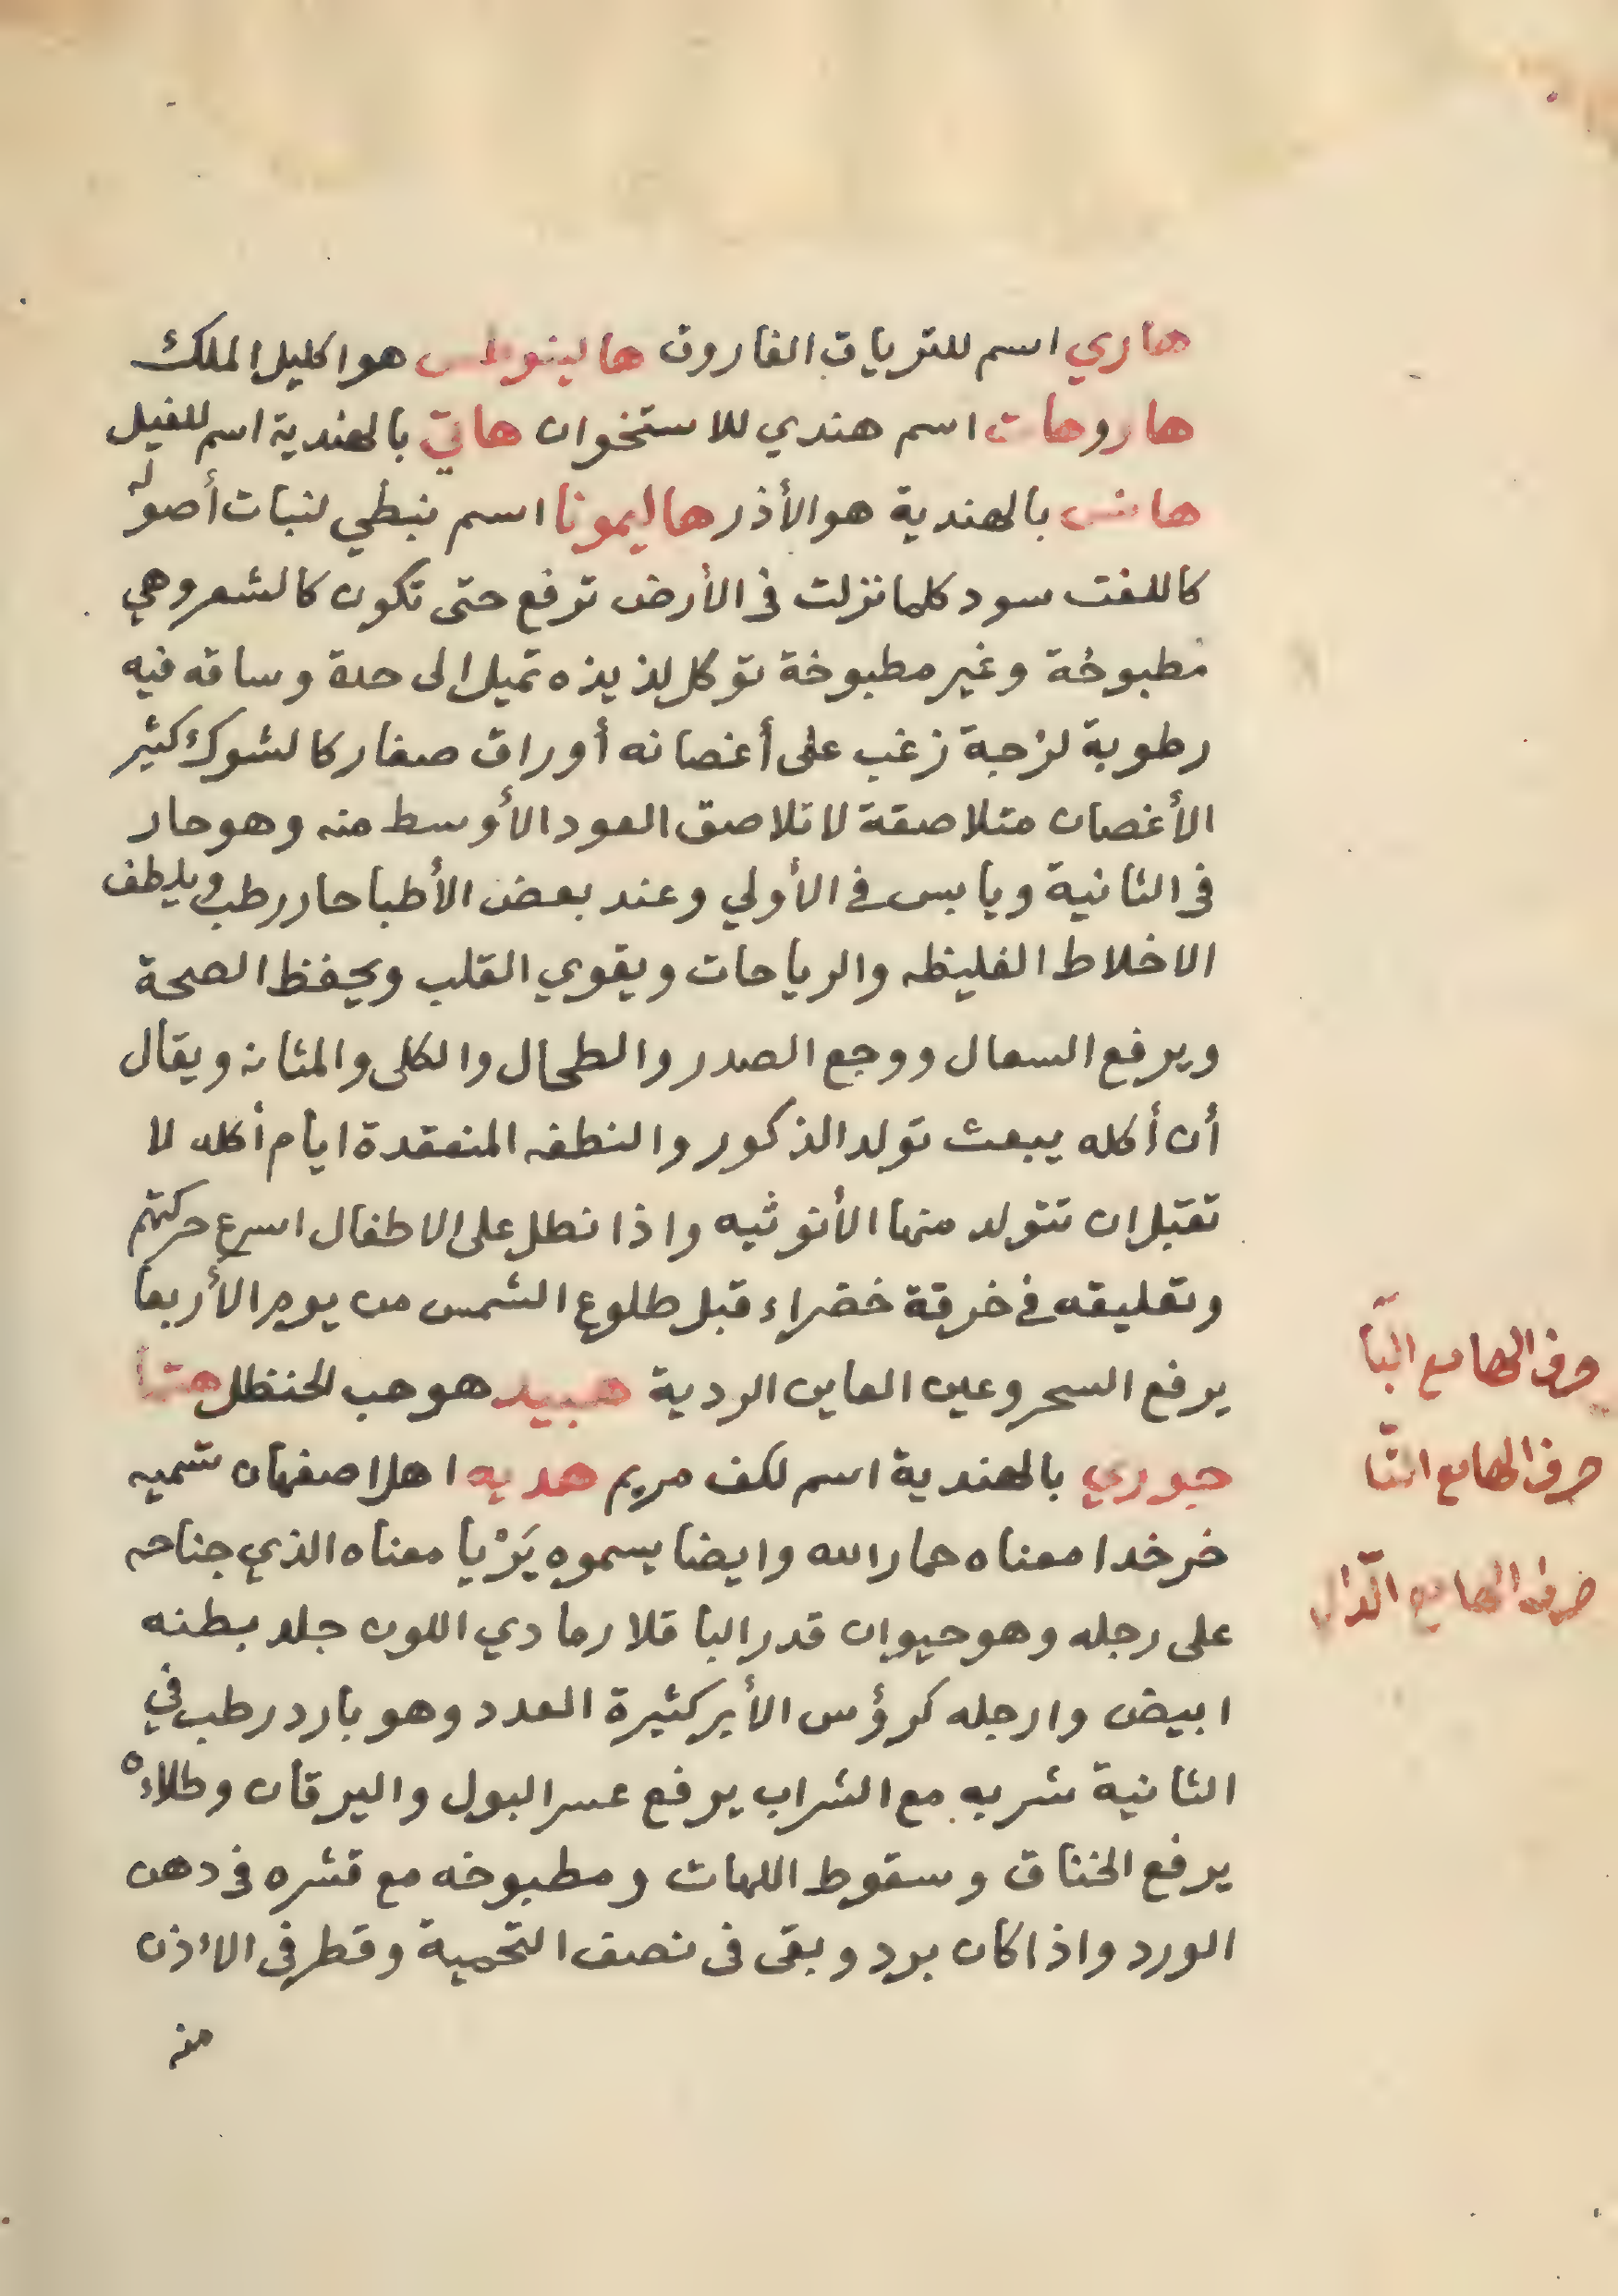 هاري اسم للترياق الفاروق هالينوطس هو اكليل الملك
هاروهات اسم هندي للاستخوان هاتي بالهندية اسم للفيل
هانس بالهندية هو الأذر هاليمونا اسم نبطي لنبات أصوله
كاللفت سود كلما نزلت في الأرض ترفع حتى تكون كالشعر وهي
مطبوخة وغير مطبوخة توكل لذيذه تميل الى حدة وساقه فيه
رطوبة لزجة زغب على أغصانه أوراق صغار كالشوك كثير
الأغصان متلاصقة لا تلاصق العود الأوسط منه وهو حار
في الثانية ويابس في الأولي وعند بعض الأطبا حار رطب ويلطف
الاخلاط الغليظه والرياحات ويقوي القلب ويحفظ الصحة
ويرفع السعال ووجع الصدر والطحال والكلى والمثانه ويقال
أن أكله يبعث تولد الذكور والنطفه المنعقدة ايام أكله لا
تقبل ان تتولد منها الأنوثيه واذا نطل على الاطفال اسرع حركتهم
وتعليقه في خرقة خضراء قبل طلوع الشمس من يوم الأربعا
يرفع السحر وعين العاين الردية هبيد هو حب الحنظل هتا
جوري بالهندية اسم لكف مريم هدبه اهل اصفهان تسميه
خرخدا معناه حمار الله وايضا يسموه يَرْيا معناه الذي جناحه
على رجله وهو حيوان قدر الباقلا رمادي اللون جلد بطنه
ابيض وارجله كرؤس الأبر كثيرة العدد وهو بارد رطب في
الثانية شربه مع الشراب يرفع عسر البول واليرقان وطلاءه
يرفع الخناق وسقوط اللهات ومطبوخه مع قشره في دهن
الورد واذا كان برد وبقى في نصف التحمية وقطر في الاذن
منه
حرف الها مع البآ
حرف الها مع التآ
حرف الها مع الدّال